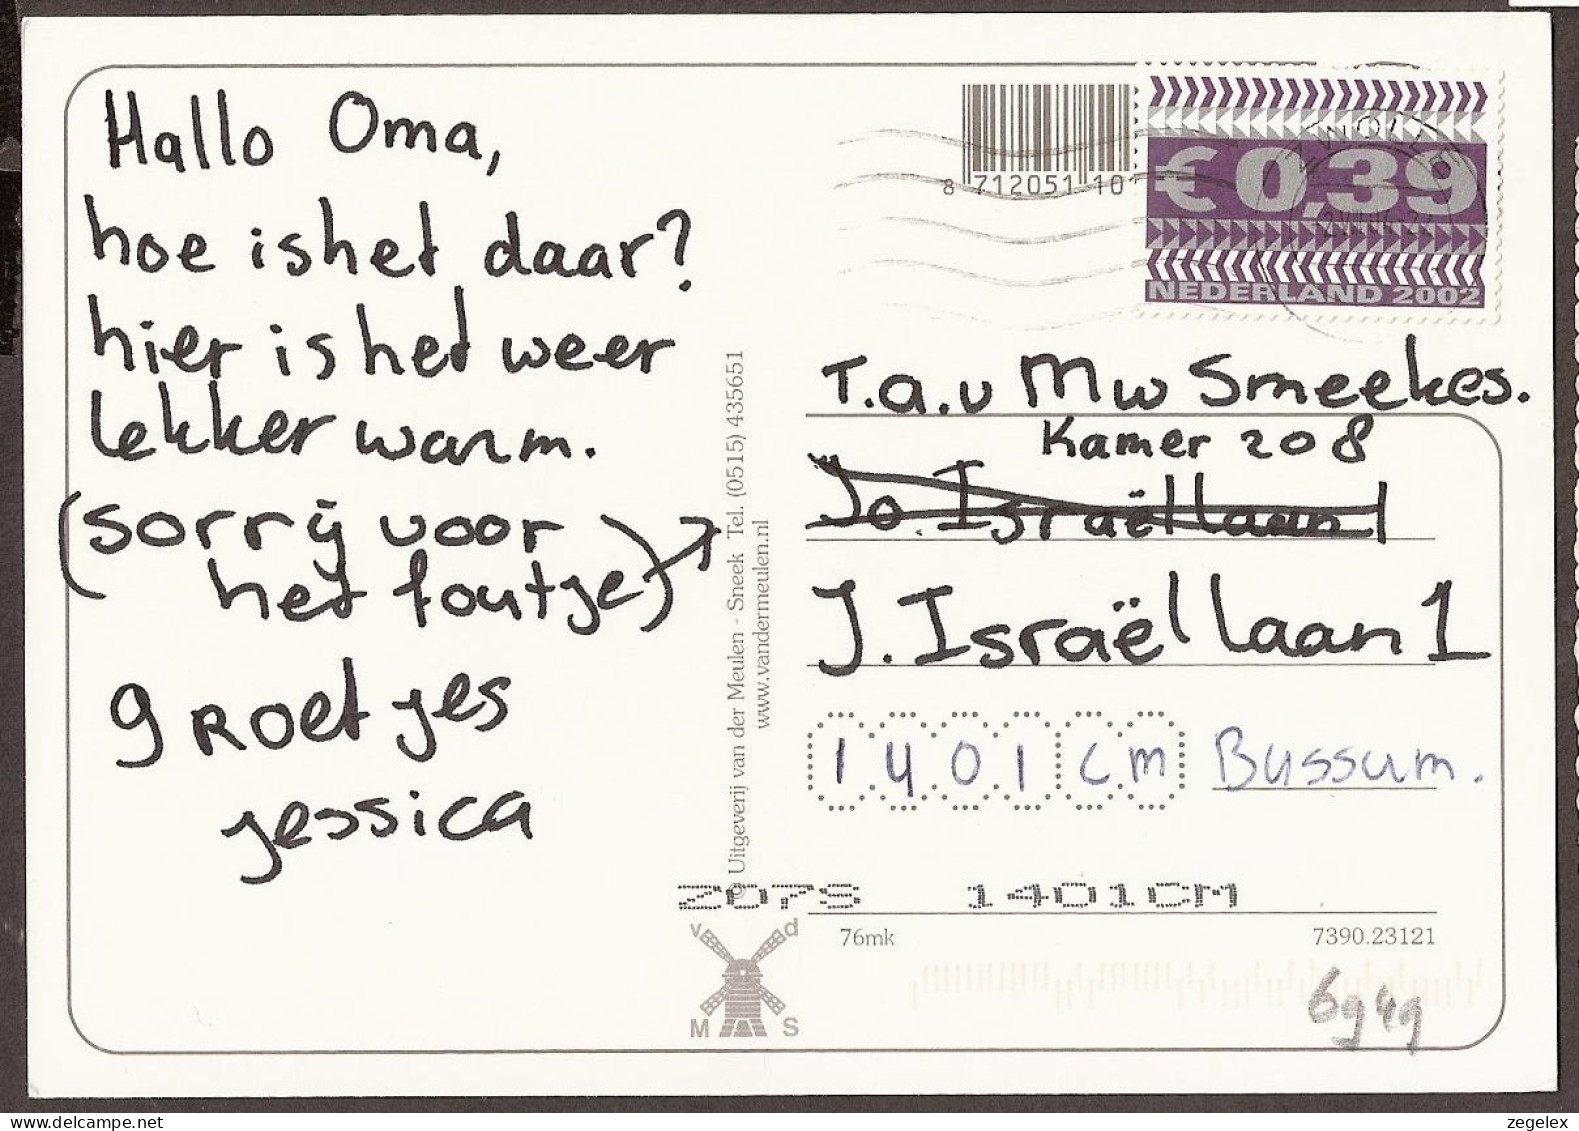 Hallo Oma,
hoe ishet daar?
hier is het weer
lekker warm.
(sorrij voor
het foutje)
groetjes
jessica
© Uitgeverij van der Meulen - Sneek Tel. (0515) 435651
www.vandermeulen.nl
8 712051 10
€ 0,39
NEDERLAND 2002
ZWOLLE
T.a.v Mw Smeekes.
Kamer 208
Jo. Israëllaan 1
J. Israëllaan 1
1401 CM Bussum.
ZO7S 1401CM
76mk 7390.23121
v d
M S
zegelex